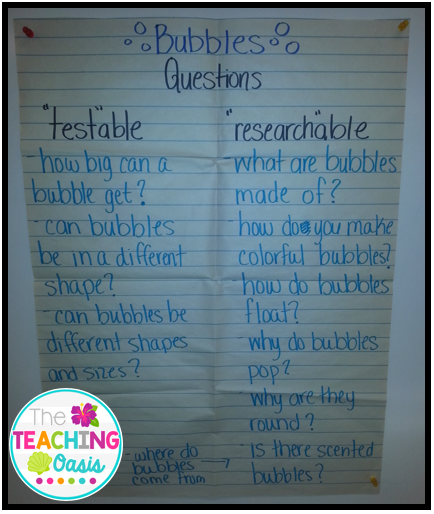 Bubbles
Questions
"test"able
-how big can a
bubble get?
-can bubbles
be in a different
shape?
-can bubbles be
different shapes
and sizes?
-where do
bubbles
come from
"research"able
-what are bubbles
made of?
-how do you make
colorful bubbles?
-how do bubbles
float?
-why do bubbles
pop?
-why are they
round?
-is there scented
bubbles?
The
TEACHING
Oasis